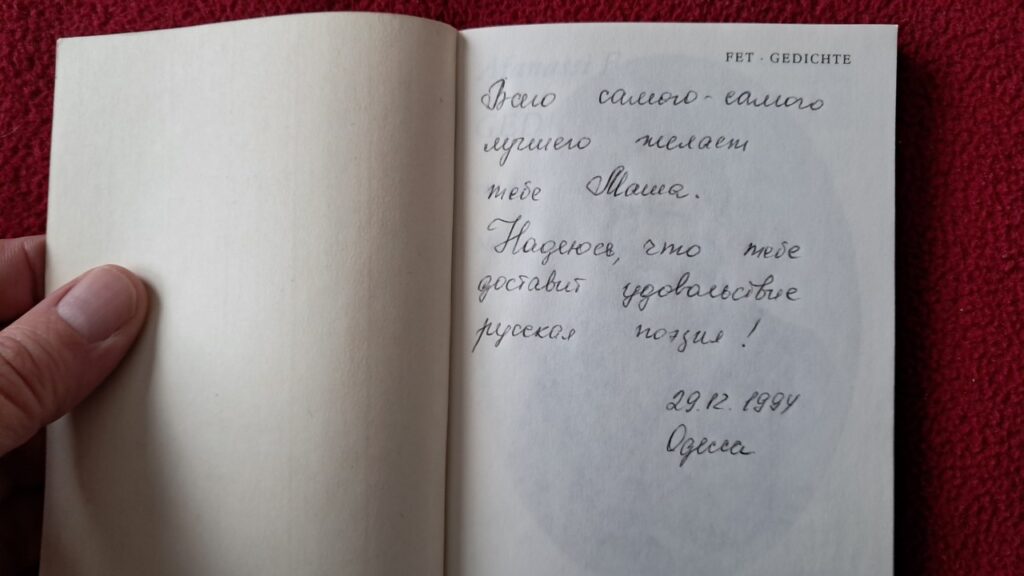 FET · GEDICHTE
Всего самого-самого
лучшего желает
тебе Маша.
Надеюсь, что тебе
доставит удовольствие
русская поэзия!
29.12.1994
Одесса